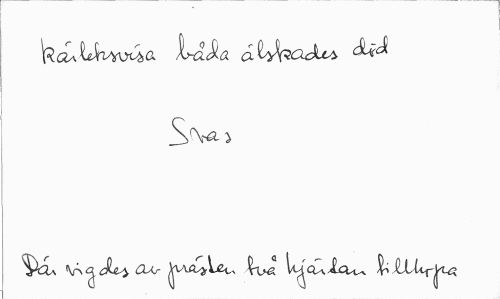 kärleksvisa båda älskades död
Svas
Där vigdes av prästen två hjärtan tillhopa